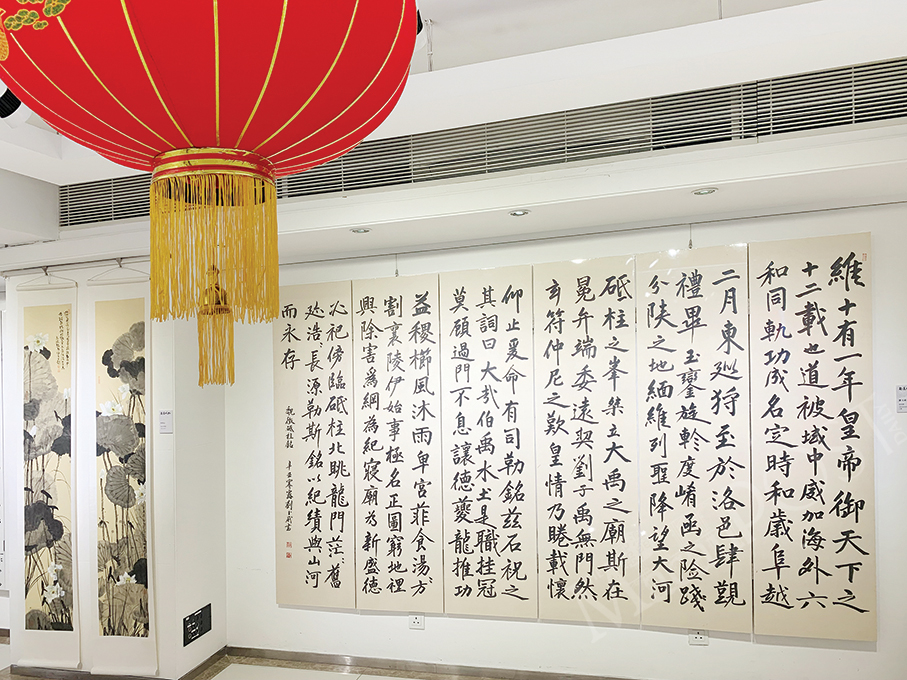 維十有一年皇帝御天下之
十二載也道被域中威加海外六
和同軌功成名定時和歲阜越
二月東巡狩至於洛邑肆覲
禮畢玉鑾旋軫度崤函之险踐
分陝之地緬維列聖降望大河
砥柱之峯桀立大禹之廟斯在
冕弁端委遠契劉子禹無門然
玄符仲尼之歎皇情乃睠載懷
仰止爰命有司勒銘茲石祝之
其詞曰大哉伯禹水土是職挂冠
莫顧過門不息讓德夔龍推功
益稷櫛風沐雨卑宮菲食湯方
割襄陵伊始事極名正圖窮地裡
興除害爲綱為紀寢廟為新盛德
必祀傍臨砥柱北眺龍門茫々舊
跡浩長源勒斯銘以紀績與山河
而永存
魏徵砥柱銘 辛丑寒露劉